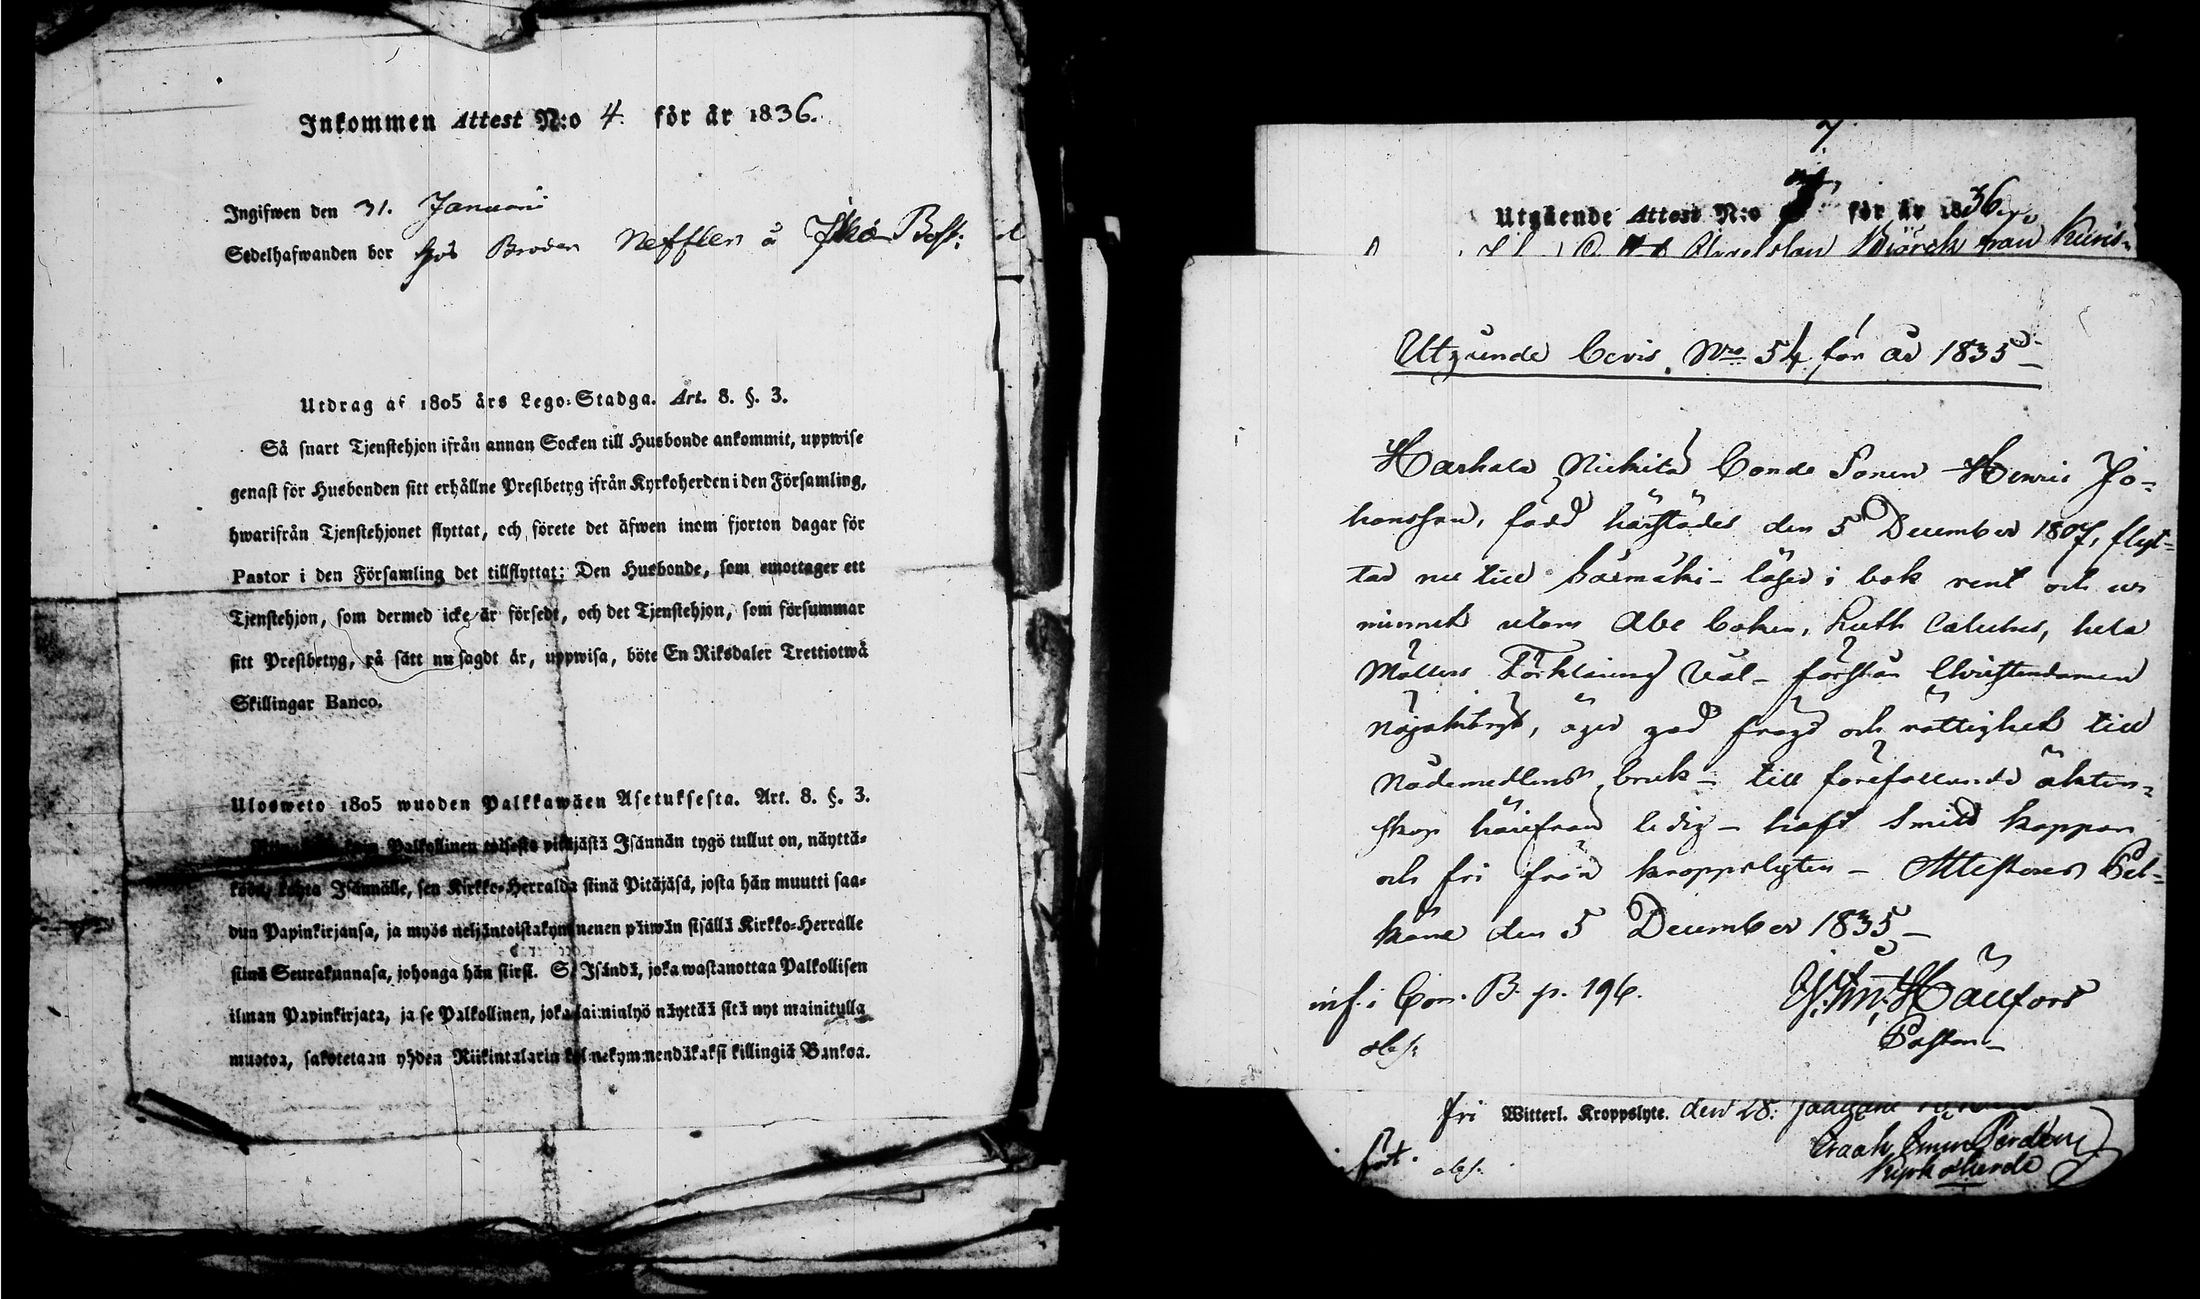 Inkommen Attest N:o 4. för år 1836.
Ingifwen den 31. Januari
Sedelhafwanden bor hos Broder Neffler å
Utdrag af 1805 års Lego-Stadga. Art. 8. §. 3.
Så snart Tjenstehjon ifrån annan Socken till Husbonde ankommit, uppwise
genast för Husbonden sitt erhållne Prestbetyg ifrån Kyrkoherden i den Församling,
hwarifrån Tjenstehjonet flyttat, och förete det äfwen inom fjorton dagar för
Pastor i den Församling det tillflyttat; Den Husbonde, som emottager ett
Tjenstehjon, som dermed icke är försedt, och det Tjenstehjon, som försummar
sitt Prestbetyg, på sätt nu sagdt är, uppwisa, böte En Riksdaler Trettiotwå
Skillingar Banco.
Ulosweto 1805 wuoden Palkkawäen Asetuksesta. Art. 8. §. 3.
Palkollinen toisesta pitäjästä Isännän tygö tullut on, näyttä-
Isännälle, sen Kirkko-Herralda siinä Pitäjäsä, josta hän muutti saa-
dun Papinkirjansa, ja myös neljäntoistakymmenen päiwän sisällä Kirkko-Herralle
siinä Seurakunnasa, johonga hän siirsi. Se Isändä, joka wastanottaa Palkollisen
ilman Papinkirjata, ja se Palkollinen, joka laiminlyö näyttää sitä nyt mainitulla
muotoa, sakotetaan yhden Riikintalarin kolmekymmendäkaksi killingiä Bankoa.
7.
Utgående Attest N:o 7 för år 1836.
Björck från
Utgående Bevis Nro 54 för år 1835
Harhala Nickilä Bonde Sonen Henric Jo-
hansson, född härstädes den 5 December 1807, flyt-
tar nu till Särmäki - läser i bok rent och ur
minnet utom Abc boken, Luth. Cateches, hela
Möllers Förklaring väl - förstår Christendomen
nöjaktigt, äger god frägd och rättighet till
Nådemedlens bruk - till förefallande äkten-
skap härifrån ledig - haft Smitt koppor
och fri från kroppslyten - Attesteras Pel-
käne den 5 December 1835 -
inf. i Com. B. p. 196.
Pastor
fri Witterl. Kroppslyte. den 28.
Kyrkoherde